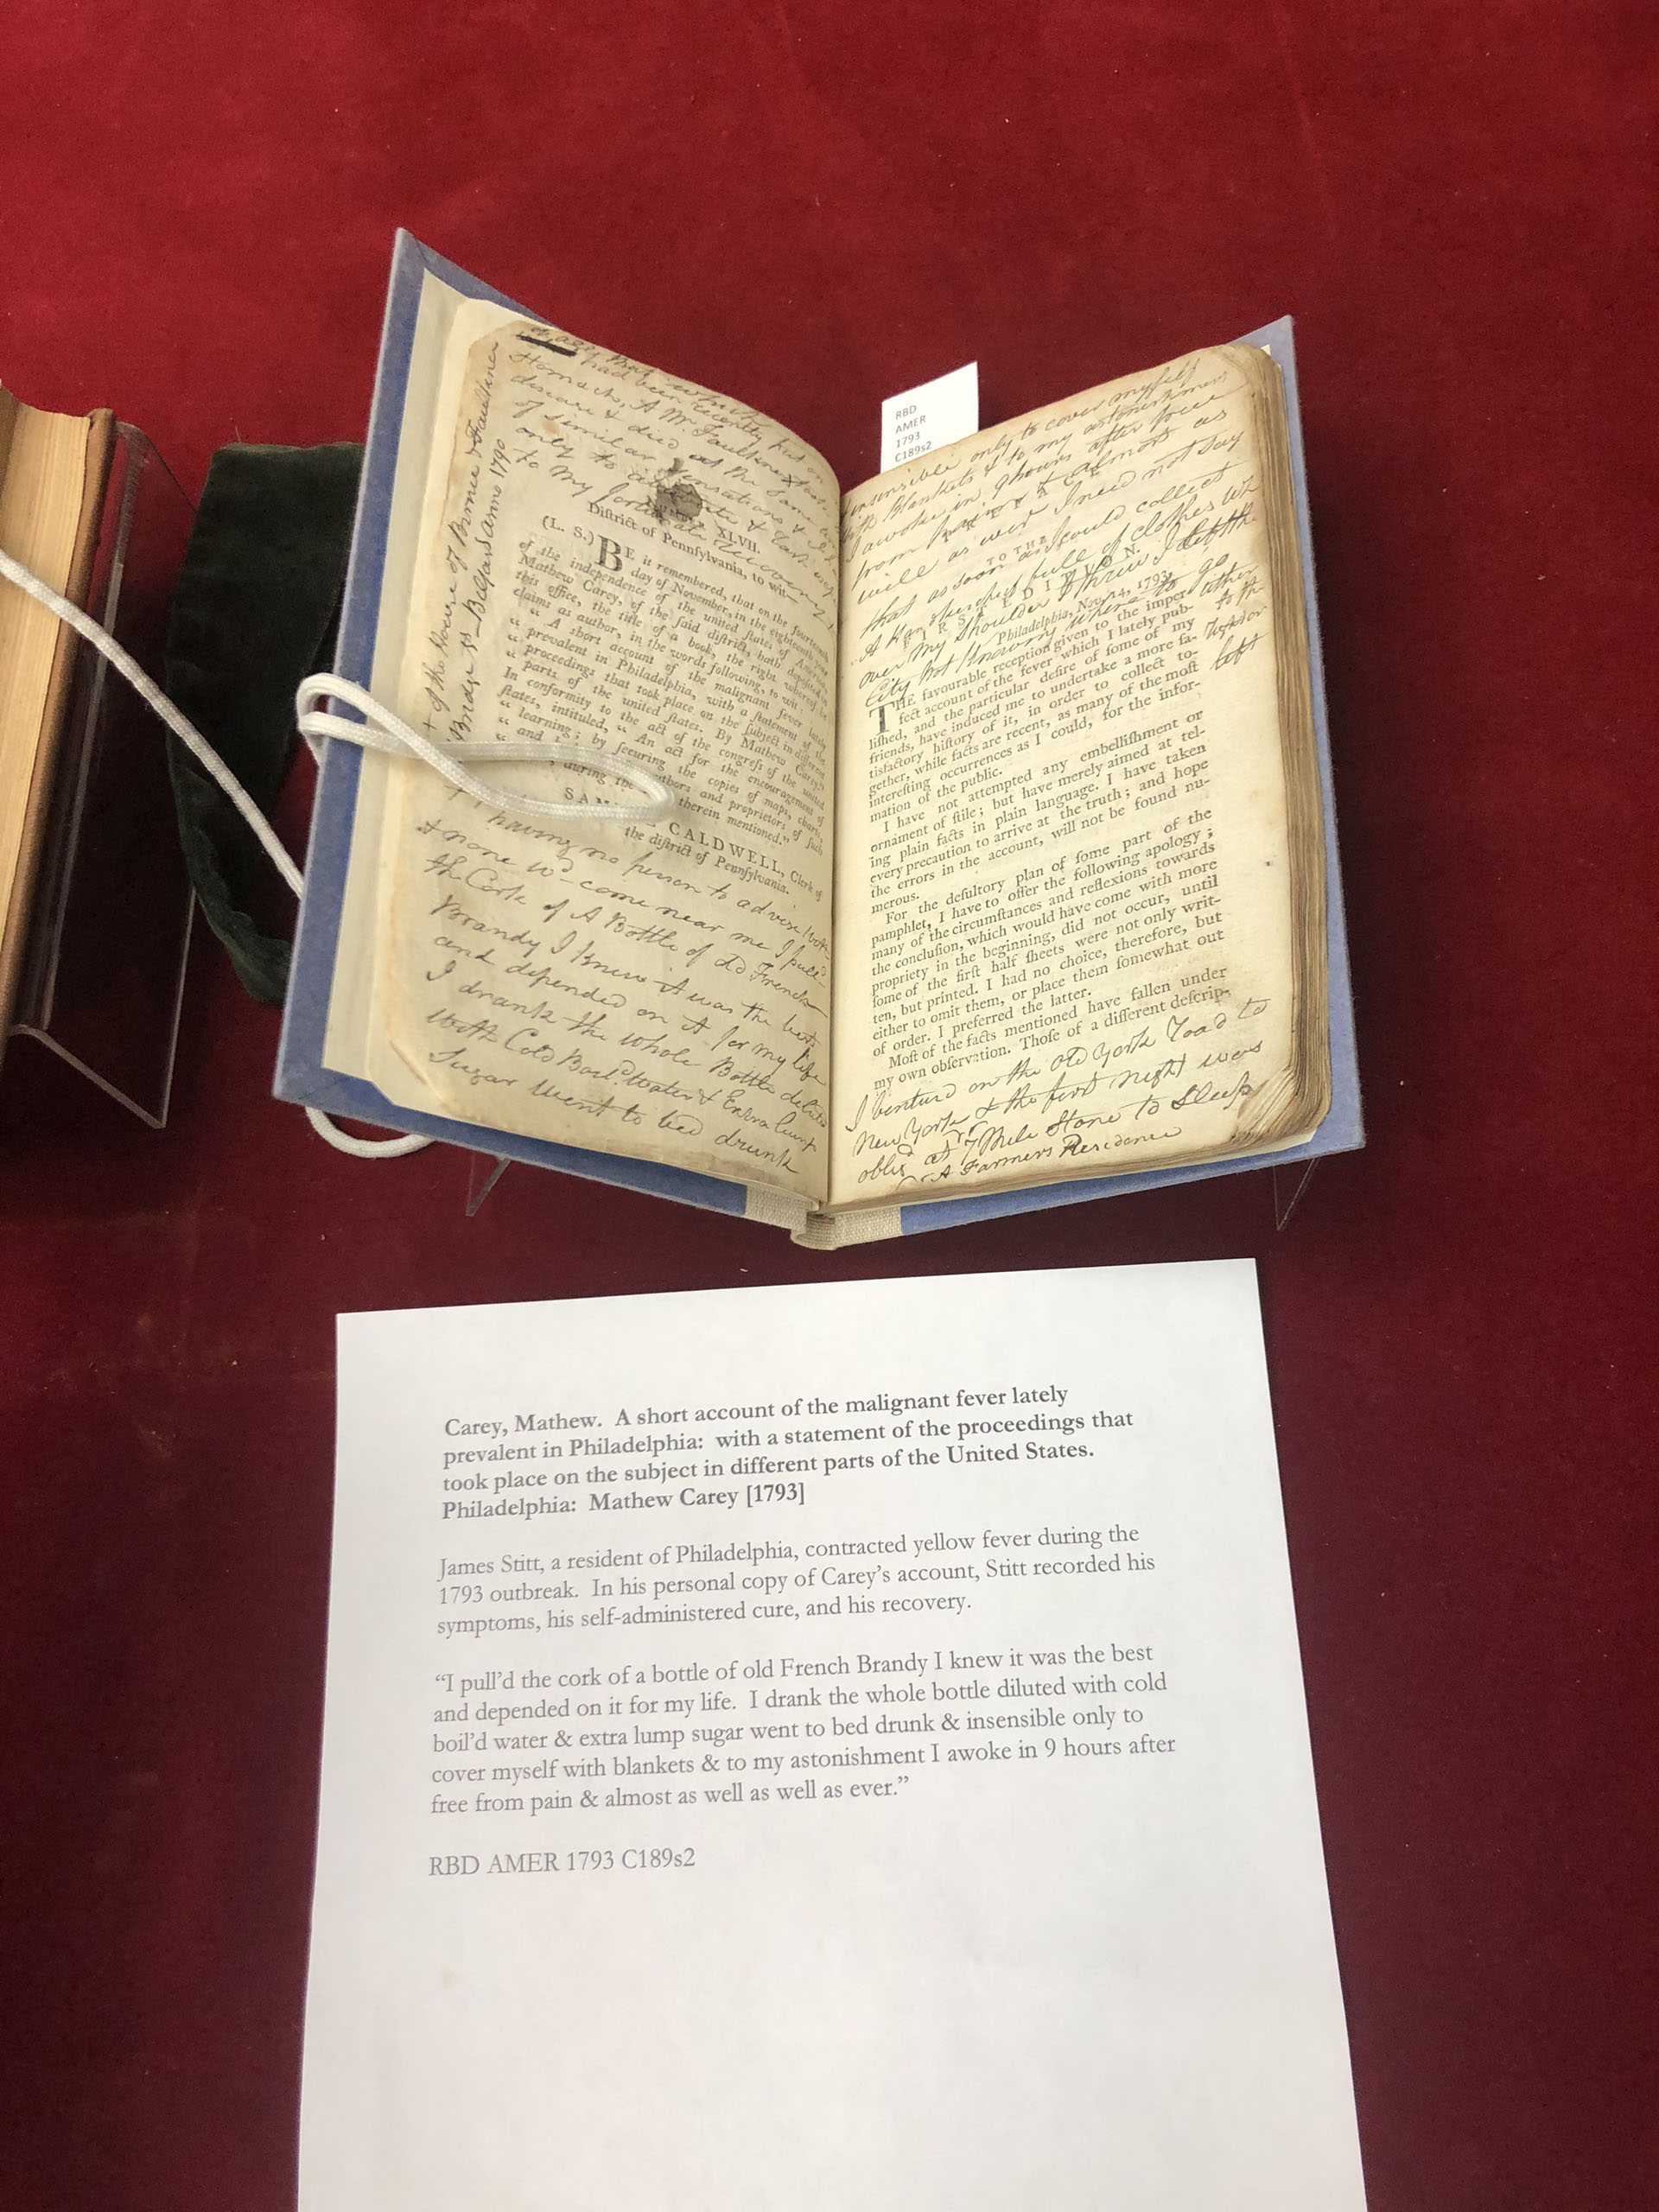 of
had been recently put on
disease & died at the same
of similar sensations &
only to
to my fortunate recovery
+ of the house of
Bridge St Belfast anno 1790
XLVII.
District of Pennsylvania, to wit—
(L. S.) BE it remembered, that on the fourteenth
day of November, in the eighteenth year
of the independence of the united ſtates of America,
Mathew Carey, of the ſaid diſtrict, hath depoſited in
this office, the title of a book, the right whereof he
claims as author, in the words following, to wit:
“ A ſhort account of the malignant fever lately
“ prevalent in Philadelphia, with a ſtatement of the
“ proceedings that took place on the ſubject in different
“ parts of the united ſtates. By Mathew Carey.”
In conformity to the act of the congreſs of the united
ſtates, intituled, “ An act for the encouragement of
“ learning; by ſecuring the copies of maps, charts,
“ and authors and proprietors of ſuch
during the therein mentioned.”
SAM CALDWELL, Clerk of
the diſtrict of Pennſylvania.
having no person to advise with
& none wd come near me I pull'd
the Cork of A Bottle of old French
Brandy I knew it was the best
and depended on it for my life
I drank the whole Bottle diluted
with Cold Boil'd Water & Extra lump
Sugar went to bed drunk
RBD
AMER
1793
C189s2
insensible only to cover myself
with blankets & to my astonishment
I awoke in 9 hours after free
from pain & almost as
well as ever I need not say
that as soon as I could collect
A full of clothes
over my Shoulder I threw I left the
City not knowing where to go
TO THE
FIRST EDITION.
Philadelphia, Nov. 14, 1793.
THE favourable reception given to the imper-
fect account of the fever which I lately pub-
liſhed, and the particular deſire of ſome of my
friends, have induced me to undertake a more ſa-
tisfactory hiſtory of it, in order to collect to-
gether, while facts are recent, as many of the moſt
intereſting occurrences as I could, for the infor-
mation of the public.
I have not attempted any embelliſhment or
ornament of ſtile; but have merely aimed at tel-
ling plain facts in plain language. I have taken
every precaution to arrive at the truth; and hope
the errors in the account, will not be found nu-
merous.
For the deſultory plan of ſome part of the
pamphlet, I have to offer the following apology;
many of the circumſtances and reflexions towards
the concluſion, which would have come with more
propriety in the beginning, did not occur, until
ſome of the firſt half ſheets were not only writ-
ten, but printed. I had no choice, therefore, but
either to omit them, or place them ſomewhat out
of order. I preferred the latter.
Moſt of the facts mentioned have fallen under
my own obſervation. Thoſe of a different deſcrip-
other
to the
left
I ventur'd on the old York Road to
New York & the first night was
oblig'd at 7 Mile Stone to Sleep
A Farmers Residence
Carey, Mathew. A short account of the malignant fever lately
prevalent in Philadelphia: with a statement of the proceedings that
took place on the subject in different parts of the United States.
Philadelphia: Mathew Carey [1793]
James Stitt, a resident of Philadelphia, contracted yellow fever during the
1793 outbreak. In his personal copy of Carey’s account, Stitt recorded his
symptoms, his self-administered cure, and his recovery.
“I pull’d the cork of a bottle of old French Brandy I knew it was the best
and depended on it for my life. I drank the whole bottle diluted with cold
boil’d water & extra lump sugar went to bed drunk & insensible only to
cover myself with blankets & to my astonishment I awoke in 9 hours after
free from pain & almost as well as well as ever.”
RBD AMER 1793 C189s2